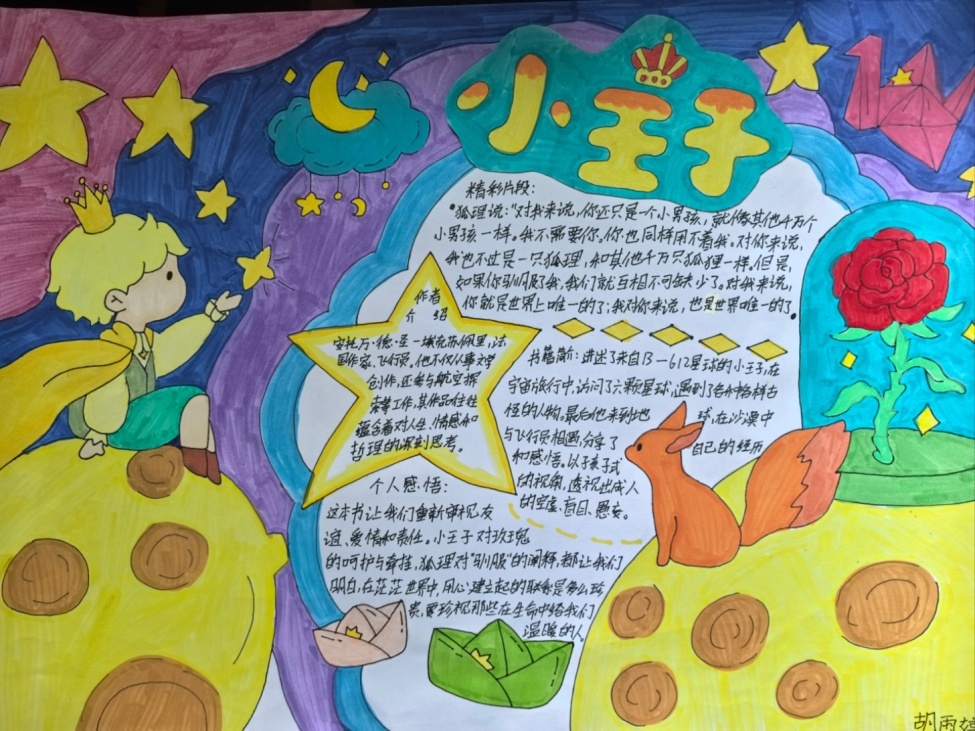 小王子
精彩片段:
•狐狸说:"对我来说,你还只是一个小男孩,就像其他千万个
小男孩一样。我不需要你。你也同样用不着我。对你来说,
我也不过是一只狐狸,和其他千万只狐狸一样。但是,
如果你驯服我,我们就互相不可缺少了。对我来说,
你就是世界上唯一的了;我对你来说,也是世界唯一的了。
作者
介绍
安托万·德·圣-埃克苏佩里,法
国作家、飞行员。他不仅从事文学
创作,还参与航空探
索等工作,其作品往往
蕴含着对人生、情感和
哲理的深刻思考。
书籍简介:讲述了来自B-612星球的小王子,在
宇宙旅行中,访问了六颗星球,遇到了各种各样古
怪的人物,最后他来到地球,在沙漠中
与飞行员相遇,分享了自己的经历
和感悟。以孩子式
的视角,透视出成人
的空虚、盲目、愚妄。
个人感悟:
这本书让我们重新审视友
谊、爱情和责任。小王子对玫瑰
的呵护与牵挂,狐狸对"驯服"的阐释,都让我们
明白,在茫茫世界中,用心建立起的联系是多么珍
贵,要珍视那些在生命中给我们
温暖的人。
胡雨婷